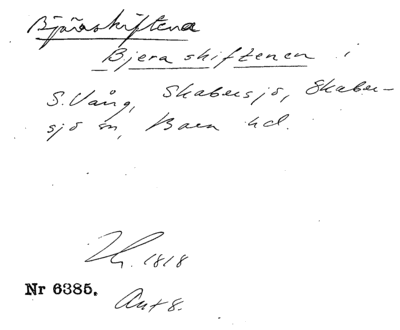 Bjäraskiftena
Bjera skiftenen i
S. Vång, Skabersjö, Skaber-
sjö sn, Bara hd.
1818
Nr 6385.
Ant 8.